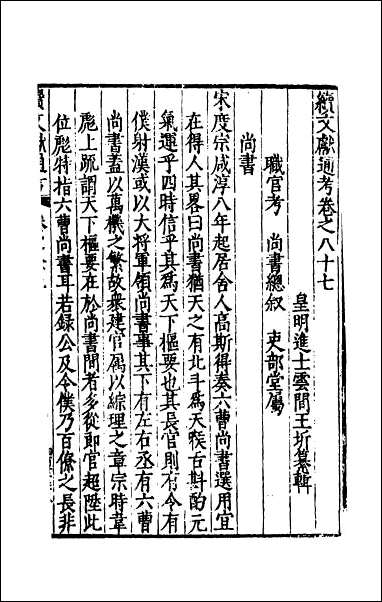 續文獻通考卷之八十七
皇明進士雲間王圻纂輯
職官考 尚書總叙 吏部堂屬
尚書
宋度宗咸淳八年起居舍人高斯得奏六曹尚書選用宜
在得人其畧曰尚書猶天之有北斗爲天喉舌斟酌元
氣運乎四時信乎其爲天下樞要也其長官則有令有
僕射漢或以大將軍領尚書事其下有左右丞有六曹
尚書蓋以萬機之繁故衆建官属以綜理之章宗時韋
彪上疏謂天下樞要在於尚書間者多從郎官超陞此
位彪特指六曹尚書耳若録公及令僕乃百僚之長非
續文獻通考